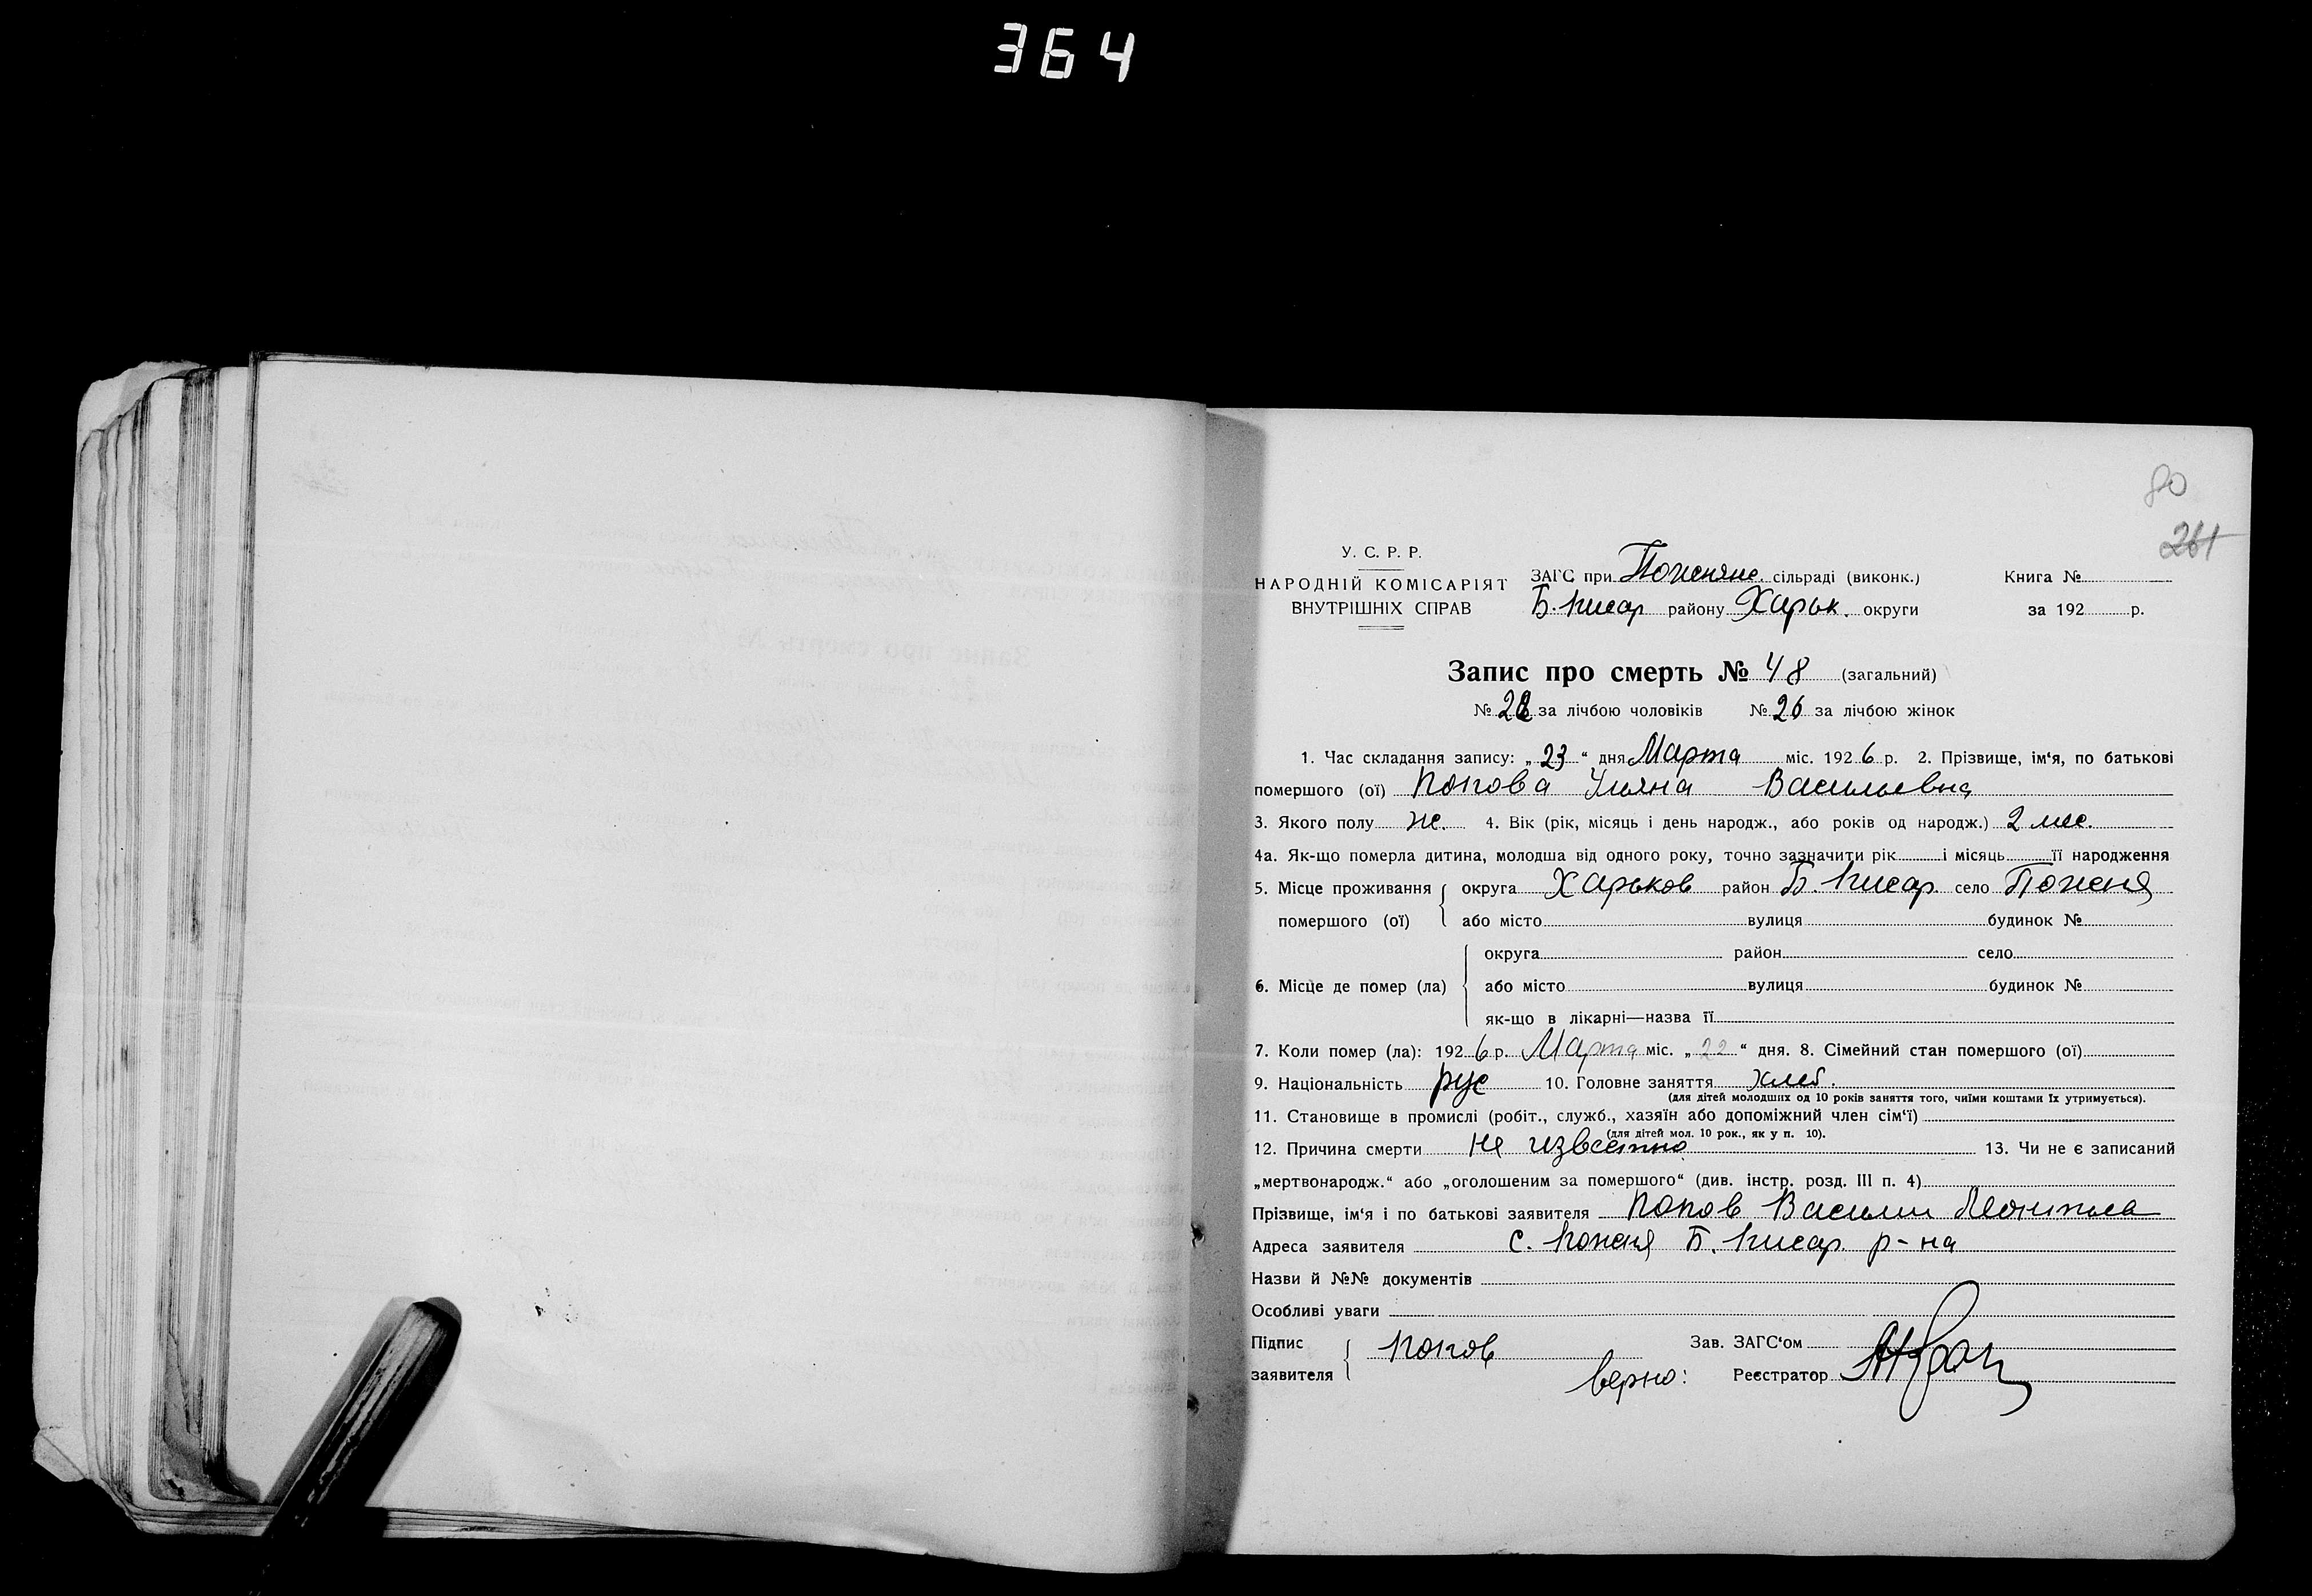 364
80
261
У. С. Р. Р.
НАРОДНІЙ КОМІСАРІЯТ
ВНУТРІШНІХ СПРАВ
ЗАГС при Поженянс. сільраді (виконк.)
Б. Писар району Харьк. округи
Книга №
за 192 р.
Запис про смерть № 48 (загальний)
№ 22 за лічбою чоловіків № 26 за лічбою жінок
1. Час складання запису: „ 23 “ дня Марта міс. 192 6 р. 2. Прізвище, ім‘я, по батькові
помершого (ої) Попова Ульяна Васильевна
3. Якого полу ж. 4. Вік (рік, місяць і день народж., або років од народж.) 2 мес.
4а. Як-що померла дитина, молодша від одного року, точно зазначити рік і місяць її народження
5. Місце проживання помершого (ої) округа Харьков район Б. Писар. село Поженя
або місто вулиця будинок №
6. Місце де помер (ла) округа район село
або місто вулиця будинок №
як-що в лікарні—назва її
7. Коли помер (ла): 192 6 р. Марта міс. „ 22 “ дня. 8. Сімейний стан помершого (ої)
9. Національність рус 10. Головне заняття хлеб.
(для дітей молодших од 10 років заняття того, чиїми коштами їх утримується).
11. Становище в промислі (робіт., служб., хазяїн або допоміжний член сім‘ї)
(для дітей мол. 10 рок., як у п. 10).
12. Причина смерти не известно 13. Чи не є записаний
„мертвонародж.“ або „оголошеним за помершого“ (див. інстр. розд. III п. 4)
Прізвище, ім‘я і по батькові заявителя Попов Василий
Адреса заявителя с. Поженя Б. Писар. р-на
Назви й №№ документів
Особливі уваги
Підпис заявителя Попов
Зав. ЗАГС‘ом
верно: Реєстратор